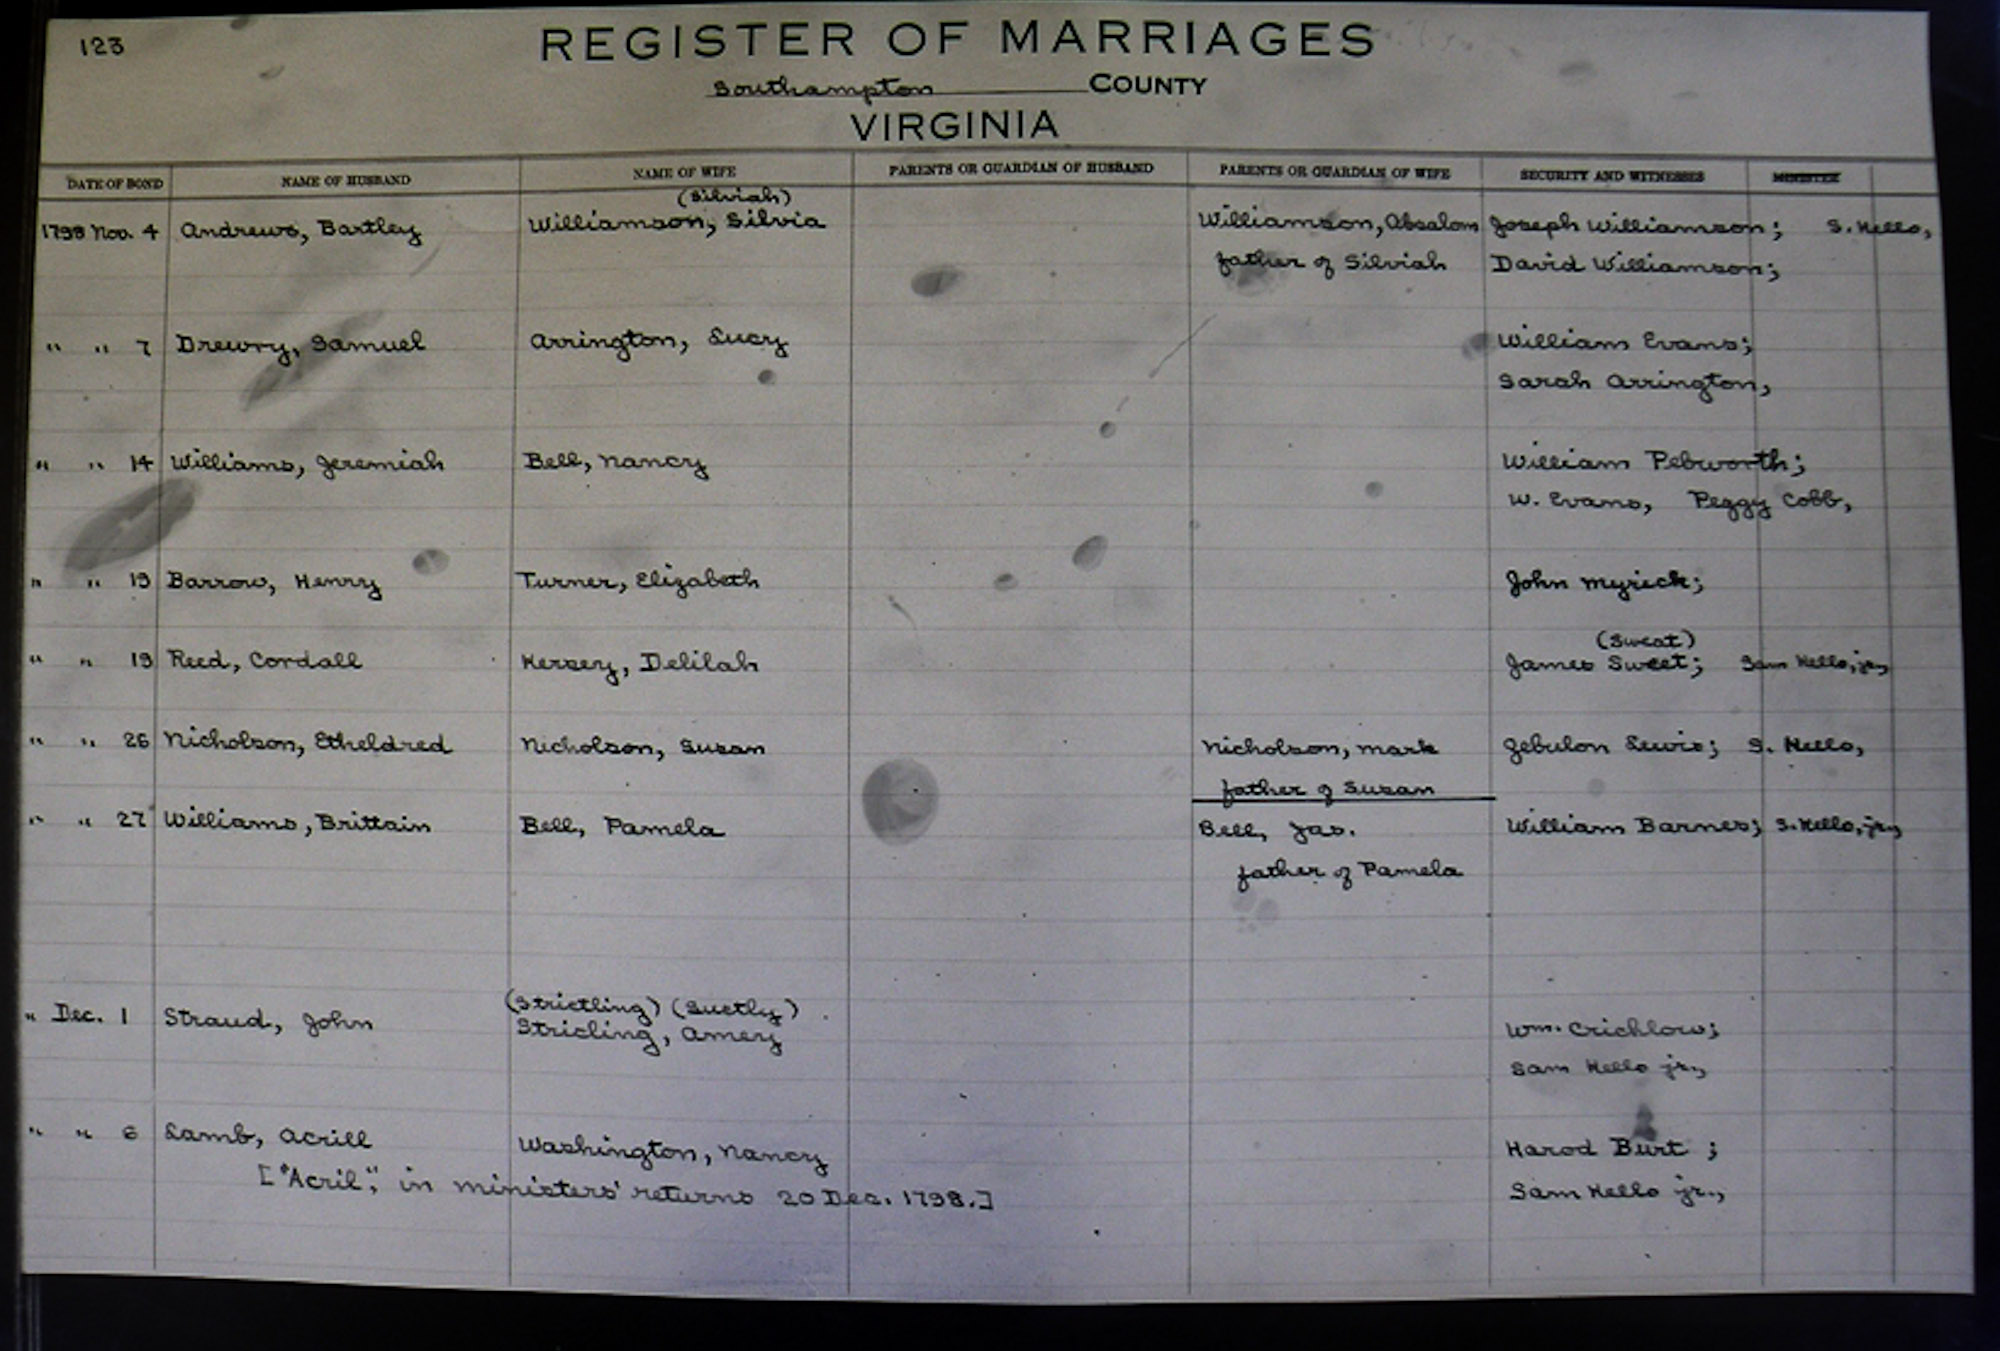 123
REGISTER OF MARRIAGES
Southampton COUNTY
VIRGINIA
DATE OF BOND NAME OF HUSBAND NAME OF WIFE PARENTS OR GUARDIAN OF HUSBAND PARENTS OR GUARDIAN OF WIFE SECURITY AND WITNESSES MINISTER
(Silviah)
1798 Nov. 4 Andrews, Bartley Williamson, Silvia Williamson, Absalom Joseph Williamson; S. Kello,
father of Silviah David Williamson;
" " 7 Drewry, Samuel Arrington, Lucy William Evans;
Sarah Arrington,
" " 14 Williams, Jeremiah Bell, Nancy William Pebworth;
W. Evans, Peggy Cobb,
" " 19 Barrow, Henry Turner, Elizabeth John Myrick;
(Sweat)
" " 19 Reed, Cordall Kersey, Delilah James Sweet; Sam Kello, jr.,
" " 26 Nicholson, Etheldred Nicholson, Susan Nicholson, Mark Zebulon Lewis; S. Kello,
father of Susan
" " 27 Williams, Brittain Bell, Pamela Bell, Jas. William Barnes; S. Kello, jr.,
father of Pamela
(Strictling) (Suetly)
" Dec. 1 Straud, John Stricling, Amey Wm. Crichlow;
Sam Kello jr.,
" " 6 Lamb, Acrill Washington, Nancy Harod Burt ;
["Acril", in ministers' returns 20 Dec. 1798.] Sam Kello jr.,